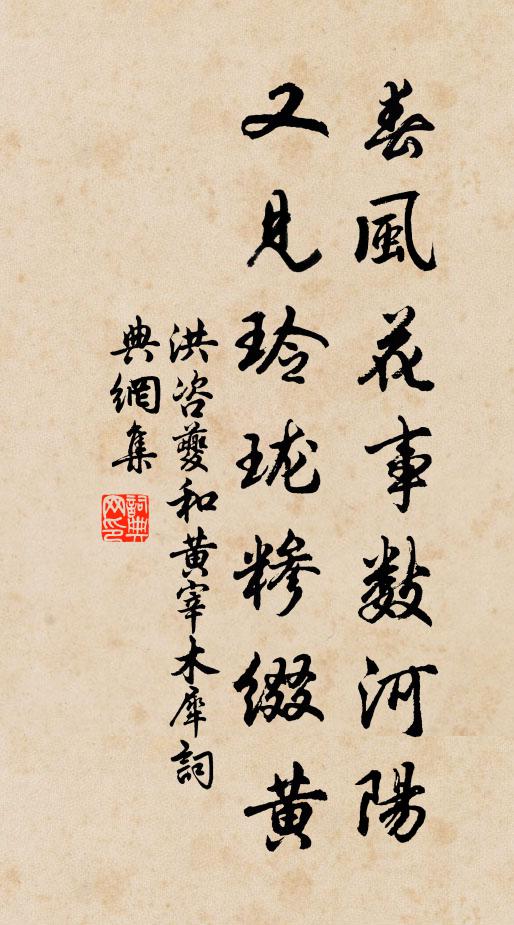 春風花事數河陽
又見玲瓏糝綴黃
洪咨夔和黃宰木犀詞
典網集
詞典網印